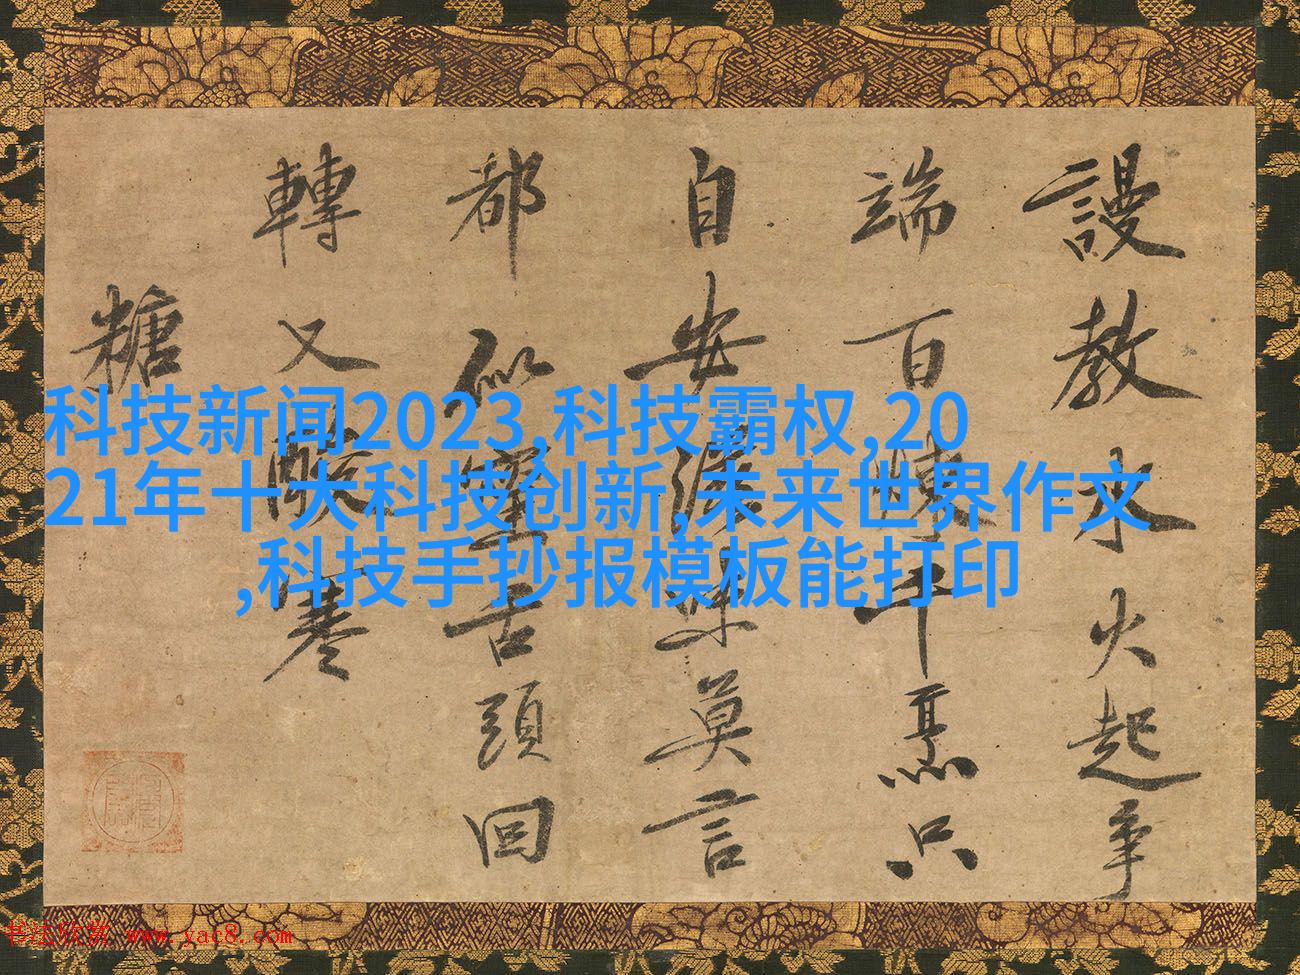 謾教水火起爭
端百煉千烹只
自安滋味莫言
都似蜜舌頭回
轉又酸寒
糖
科技新闻2023,科技霸权,20
21年十大科技创新,未来世界作文
,科技手抄报模板能打印
书法欣赏 www.yac8.com